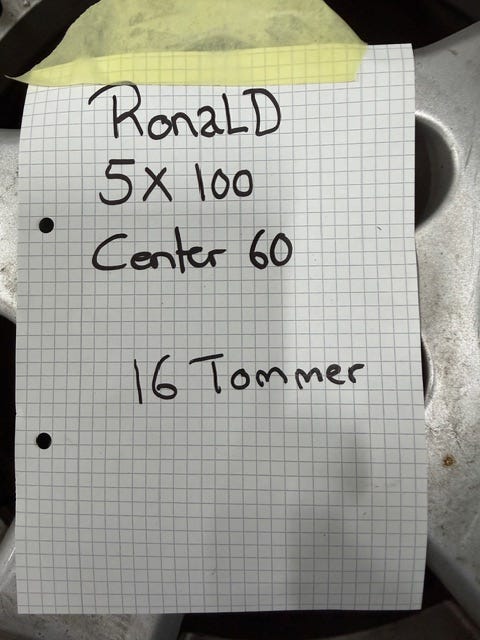 RonaLD
5X 100
Center 60
16 Tommer